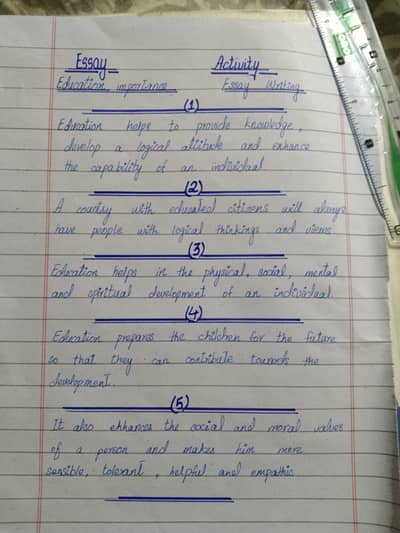 Essay Activity
Education importance Essay Writing
(1)
Education helps to provide knowledge,
develop a logical attitude and enhance
the capability of an individual
(2)
A country with educated citizens will always
have people with logical thinkings and views
(3)
Education helps in the physical, social, mental
and spiritual development of an individual.
(4)
Education prepares the children for the future
so that they can contribute towards the
development.
(5)
It also ehhances the social and moral values
of a person and makes him more
sensible, tolerant, helpful and empathic